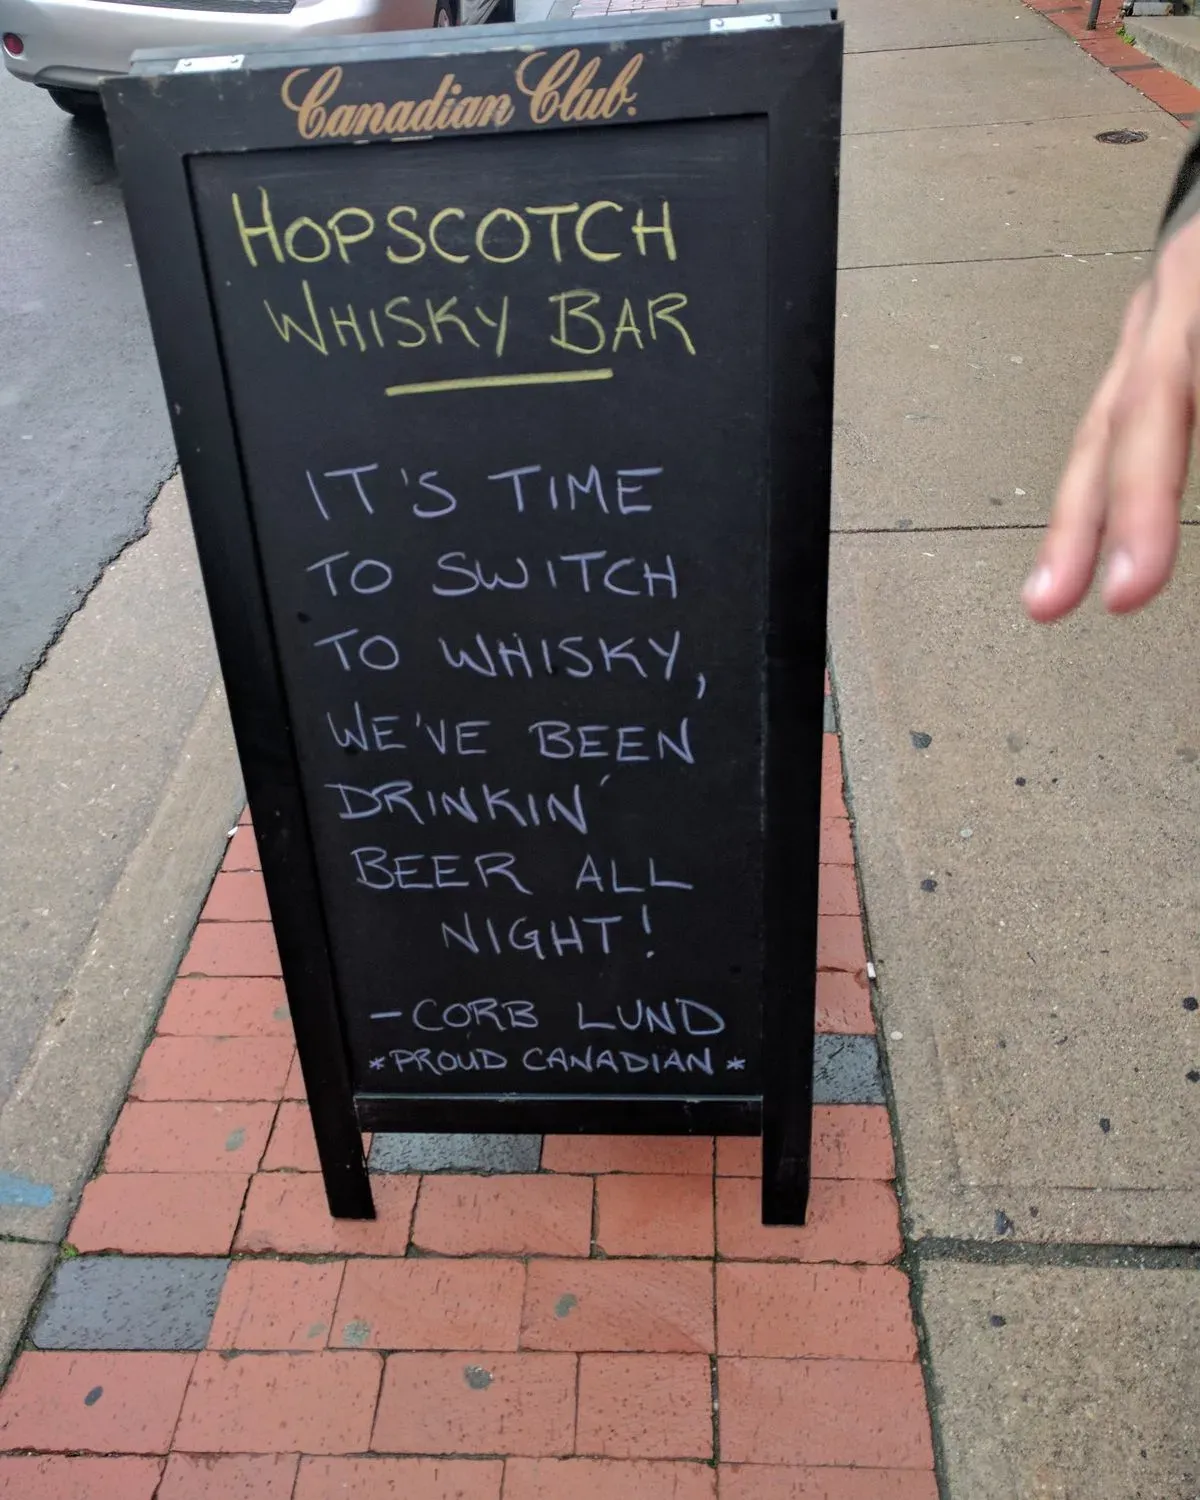 Canadian Club.
HOPSCOTCH
WHISKY BAR
IT'S TIME
TO SWITCH
TO WHISKY,
WE'VE BEEN
DRINKIN'
BEER ALL
NIGHT!
- CORB LUND
* PROUD CANADIAN *